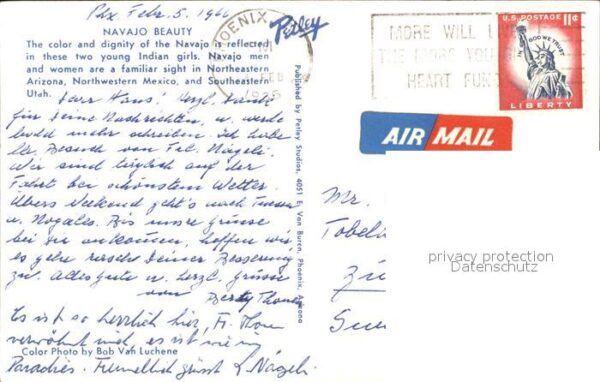 Phx. Febr. 5. 1966
NAVAJO BEAUTY
The color and dignity of the Navajo is reflected
in these two young Indian girls. Navajo men
and women are a familiar sight in Northeastern
Arizona, Northwestern Mexico, and Southeastern
Utah.
Herzl. Dank
für Deine Nachrichten, u. werde
bald mehr schreiben. Ich habe
Besuch von Frl. Nägeli.
Wir sind täglich auf der
Fahrt bei schönstem Wetter.
Übers Weekend geht's nach Tucson
u. Nogales. Bis unsre Grüsse
bei Dir ankommen, hoffen wir,
es gehe rasch Deiner Besserung
zu. Alles gute u. herzl. Grüsse
von Betty
Es ist so herrlich hier, Fr.
verwöhnt mich, es ist wie im
Paradies. Freundlich grüsst L. Nägeli
Color Photo by Bob Van Luchene
Petley
Published by Petley Studios, 4051 E. Van Buren, Phoenix, Arizona
PHOENIX
FEB
MORE WILL LIVE
THE MORE YOU GIVE
HEART FUND
U.S. POSTAGE 11¢
IN GOD WE TRUST
LIBERTY
AIR MAIL
Mr.
privacy protection
Datenschutz